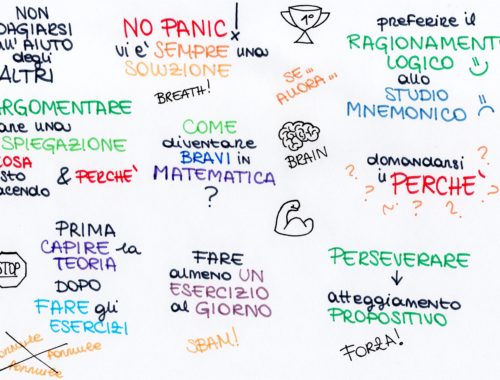 NON
ADAGIARSI
all'AIUTO
degli
ALTRI
NO PANIC!
vi è SEMPRE una
SOLUZIONE
BREATH!
1°
preferire il
RAGIONAMENTO
LOGICO
allo
STUDIO
MNEMONICO
SE...
ALLORA...
ARGOMENTARE
una
SPIEGAZIONE
COSA
sto & PERCHÈ
facendo
COME
diventare
BRAVI in
MATEMATICA
?
BRAIN
domandarsi
il PERCHE'
? ? ? ? ? ?
STOP
PRIMA
CAPIRE la
TEORIA
DOPO
FARE gli
ESERCIZI
FORMULE
FORMULE
FORMULE
FARE
almeno UN
ESERCIZIO
al GIORNO
SBAM!
PERSEVERARE
↓
atteggiamento
PROPOSITIVO
FORZA!